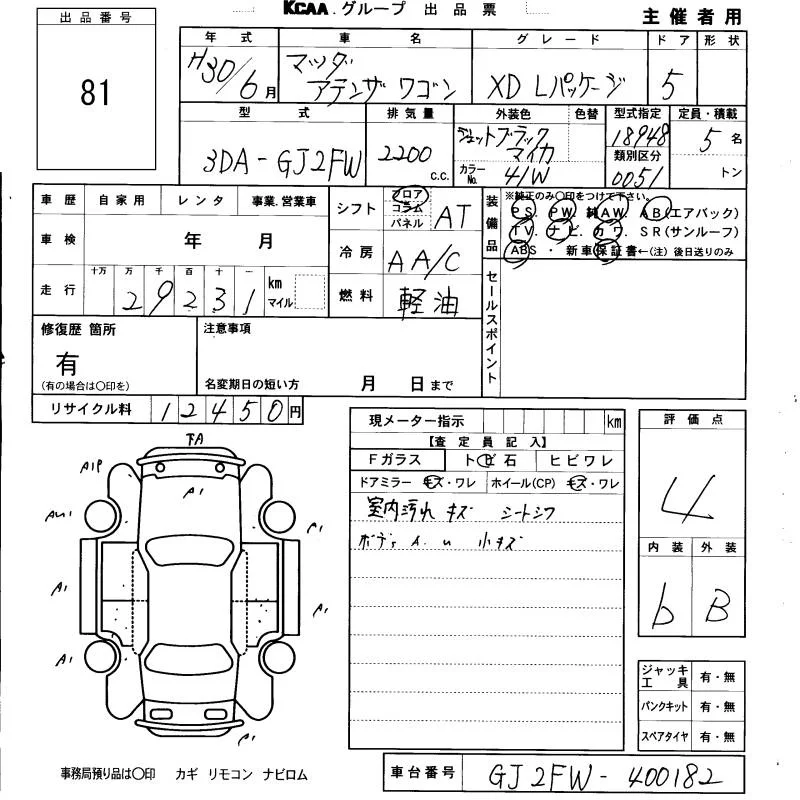 KCAA.グループ 出品票
主催者用
出品番号
81
年式 車名 グレード ドア 形状
H30/6月 マツダ アテンザワゴン XD Lパッケージ 5
型式 排気量 外装色 色替 型式指定 定員・積載
3DA-GJ2FW 2200 c.c. ジェットブラックマイカ 18948 5名
カラーNo. 41W 類別区分 0051 トン
車歴 自家用 レンタ 事業.営業車
車検 年 月
走行 十万 万 千 百 十 一 km マイル
29231
シフト フロア コラム パネル AT
冷房 AA/C
燃料 軽油
装備品 ※純正のみ○印をつけて下さい。
PS. PW. 純AW. AB(エアバック)
TV. ナビ. カワ. SR(サンルーフ)
ABS・新車保証書←(注)後日送りのみ
セールスポイント
修復歴 箇所
有
(有の場合は○印を)
注意事項
名変期日の短い方 月 日まで
リサイクル料 12450円
現メーター指示 km
【査定員記入】
Fガラス トビ石 ヒビワレ
ドアミラー キズ・ワレ ホイール(CP) キズ・ワレ
室内汚れ キズ シートシワ
ボディ A.U 小キズ
評価点
4
内装 外装
b B
ジャッキ工具 有・無
パンクキット 有・無
スペアタイヤ 有・無
FA
A1P
A1
A1
A1
A1
A1
A1
A1
A1
事務局預り品は○印 カギ リモコン ナビロム
車台番号 GJ2FW-400182